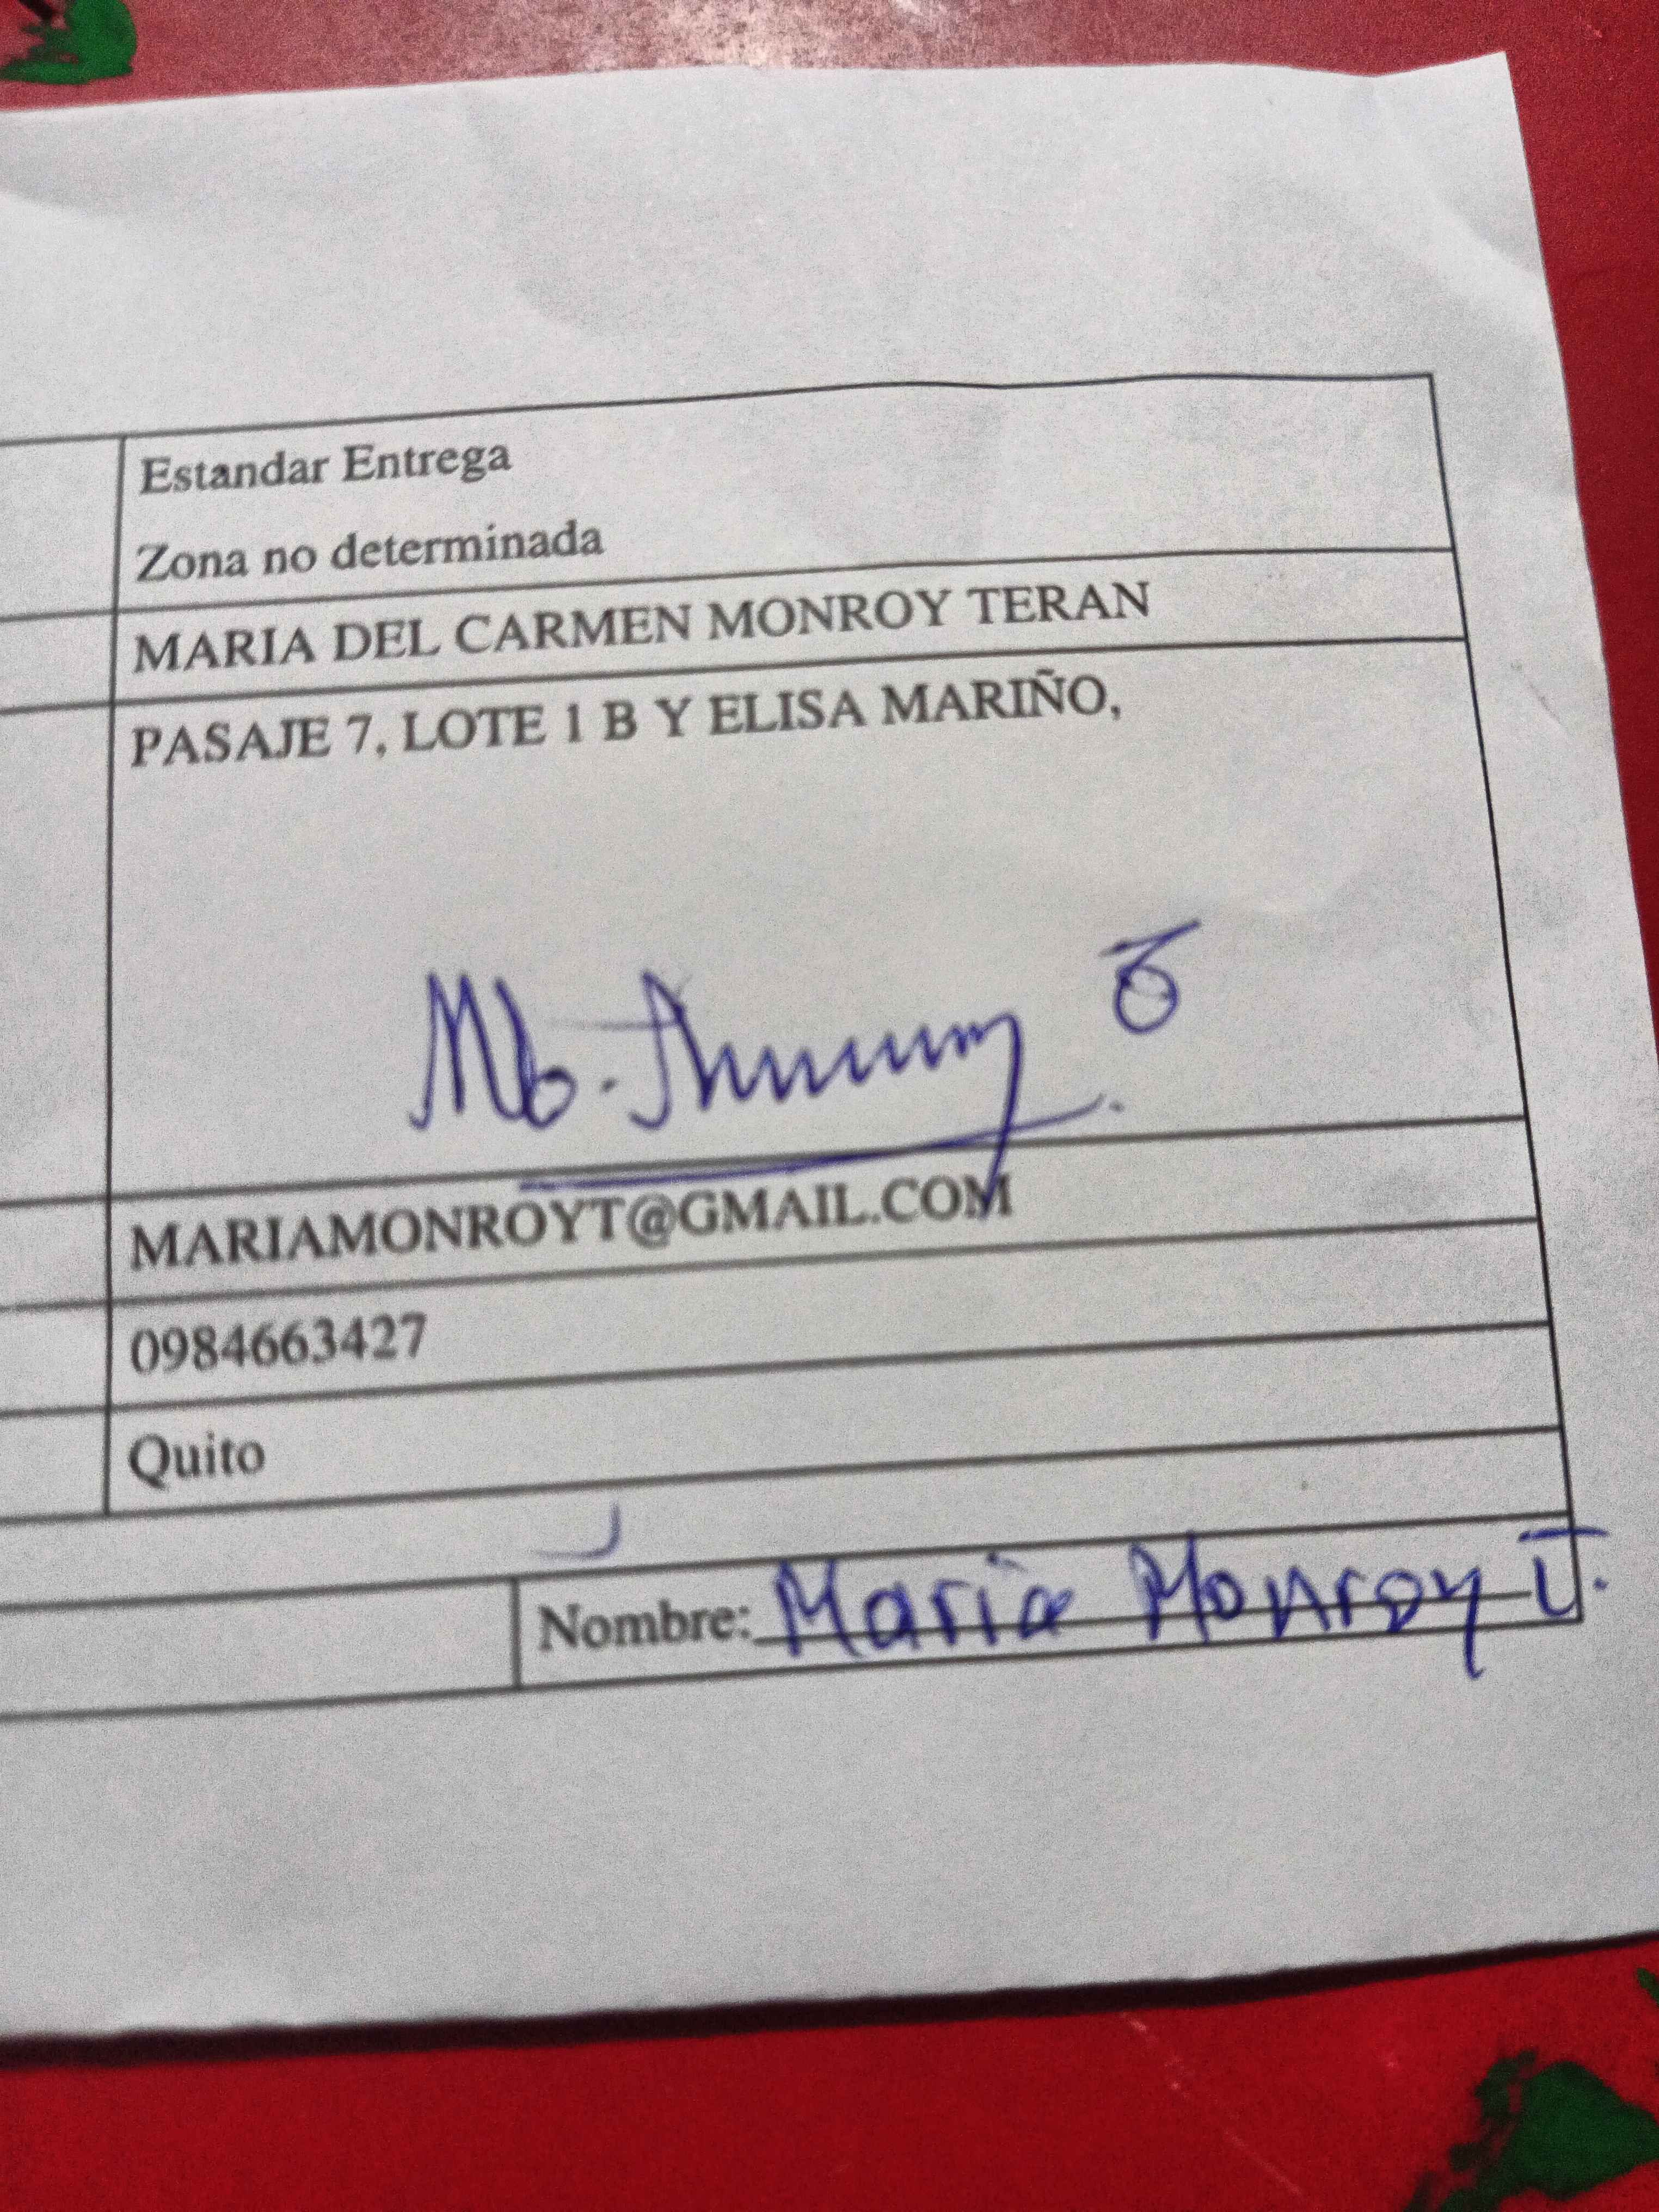 Estandar Entrega
Zona no determinada
MARIA DEL CARMEN MONROY TERAN
PASAJE 7, LOTE 1 B Y ELISA MARIÑO,
MARIAMONROYT@GMAIL.COM
0984663427
Quito
Nombre: Maria Monroy T.